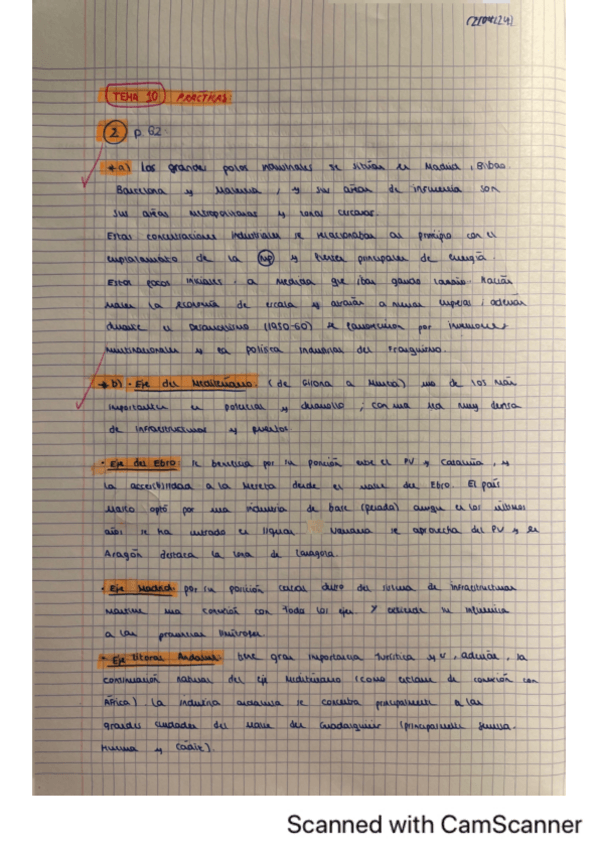 12/04/24
TEMA 10 PRACTICAS
2 p. 62
→ a) Los grandes polos industriales se sitúan en Madrid, Bilbao
Barcelona y Valencia, y sus áreas de influencia son
sus áreas metropolitanas y zonas cercanas.
Estas concentraciones industriales se relacionaban al principio con el
de la MP y fuentes principales de energía.
Estos focos iniciales, a medida que iban ganando tamaño, hacían
la economía de escala y atraían a nuevas empresas, además
durante el Desarrollismo (1950-60) se por inversiones
multinacionales y la política industrial del Franquismo.
→ b) · Eje del Mediterráneo: (de Girona a Murcia) uno de los más
importantes en potencial y desarrollo; con una red muy densa
de infraestructuras y puertos.
· Eje del Ebro: se beneficia por su posición entre el PV y Cataluña, y
la accesibilidad a la Meseta desde el valle del Ebro. El país
Vasco optó por una industria de base (pesada) aunque en los últimos
años se ha. Navarra se aprovecha del PV y en
Aragón destaca la zona de Zaragoza.
· Eje Madrid: por su posición central dentro del sistema de infraestructuras
mantiene una conexión con todos los ejes. Y extiende su influencia
a las provincias limítrofes.
· Eje litoral Andaluz: tiene gran importancia turística y es, además, la
continuación natural del eje mediterráneo (como enclave de conexión con
África) La industria andaluza se concentra principalmente a las
grandes ciudades del valle del Guadalquivir (principalmente Sevilla,
Huelva y Cádiz).
Scanned with CamScanner